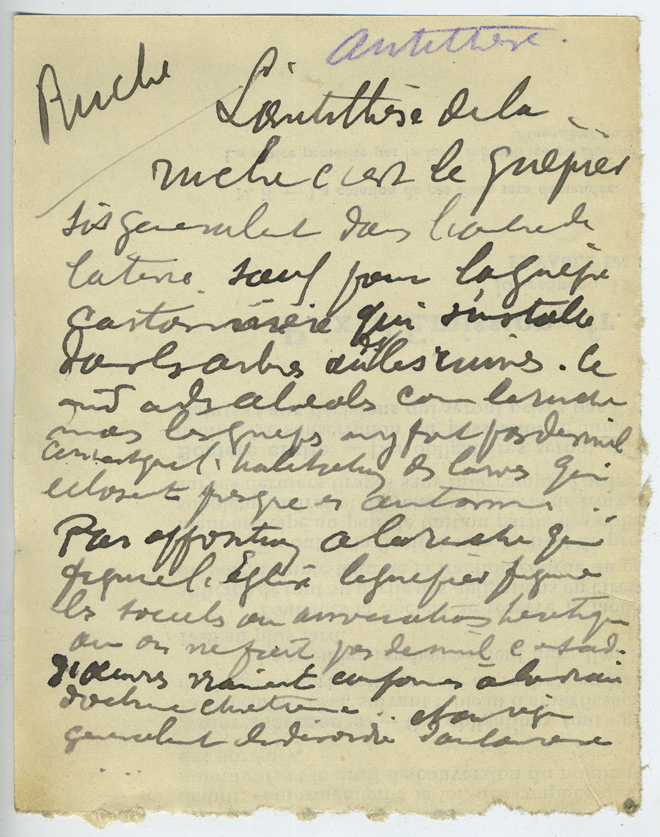 Antithèse.
Ruche
L'antithèse de la
ruche c'est le guêpier
sis generalent dans l'antre de
la terre. sauf pour la guêpe
cartonnière qui s'installe
dans les arbres ou les ruines. Ce
nid a des alveoles com la ruche
mais les guepes n'y font pas de miel
ce n'est que l'habitation des larves qui
eclosent presque en automne.
Par opposition a la ruche qui
figure l'Eglise le guepier figure
les societes ou associations heretiques
ou on ne fait pas de miel c a sad.
d'oeuvres vraiment conformes à la vraie
doctrine chretienne
generalent de desordre dans